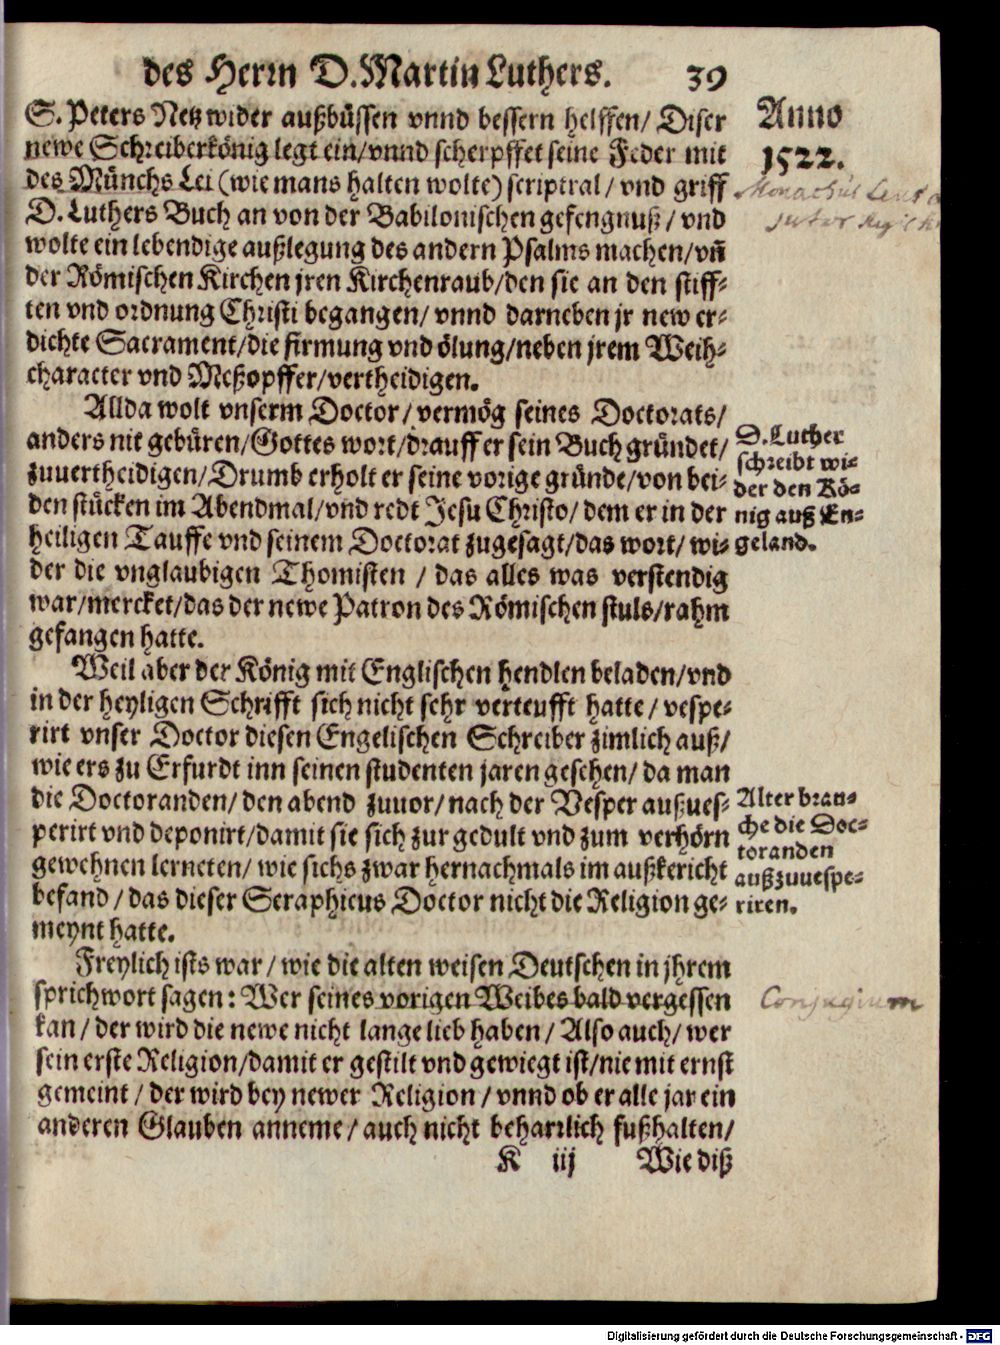 des Herrn D. Martin Luthers. 39
Anno
1522.
S. Peters Netz wider außbüssen vnnd bessern helffen/ Diser
newe Schreiberkönig legt ein/vnnd scherpffet seine Feder mit
des Münchs Lei (wie mans halten wolte) scriptral/ vnd griff
D. Luthers Buch an von der Babilonischen gefengnuß/ vnd
wolte ein lebendige außlegung des andern Psalms machen/vn̄
der Römischen Kirchen jren Kirchenraub/den sie an den stiff-
ten vnd ordnung Christi begangen/ vnnd darneben jr new er-
dichte Sacrament/die firmung vnd ölung/neben jrem Weih-
character vnd Meßopffer/vertheidigen.
Allda wolt vnserm Doctor/ vermög seines Doctorats/
anders nit gebüren/Gottes wort/drauff er sein Buch gründet/
zuuertheidigen/Drumb erholt er seine vorige gründe/von bei-
den stücken im Abendmal/vnd redt Jesu Christo/ dem er in der
heiligen Tauffe vnd seinem Doctorat zugesagt/das wort/ wi-
der die vnglaubigen Thomisten / das alles was verstendig
war/mercket/das der newe Patron des Römischen stuls/rahm
gefangen hatte.
D. Luther
schreibt wi-
der den Kö-
nig auß En-
geland.
Weil aber der König mit Englischen hendlen beladen/vnd
in der heyligen Schrifft sich nicht sehr verteufft hatte/ vespe-
rirt vnser Doctor diesen Engelischen Schreiber zimlich auß/
wie ers zu Erfurdt inn seinen studenten jaren gesehen/ da man
die Doctoranden/ den abend zuuor/ nach der Vesper außues-
perirt vnd deponirt/damit sie sich zur gedult vnd zum verhörn
gewehnen lerneten/ wie sichs zwar hernachmals im außkericht
befand / das dieser Seraphicus Doctor nicht die Religion ge-
meynt hatte.
Alter breu-
che die Doc-
toranden
außzuuespe-
riren.
Freylich ists war/ wie die alten weisen Deutschen in jhrem
sprichwort sagen: Wer seines vorigen Weibes bald vergessen
kan/ der wird die newe nicht lange lieb haben/ Also auch/ wer
sein erste Religion/damit er gestilt vnd gewiegt ist/nie mit ernst
gemeint / der wird bey newer Religion / vnnd ob er alle jar ein
anderen Glauben anneme/ auch nicht beharrlich fußhalten/
Conjugium
K iij Wie diß
Digitalisierung gefördert durch die Deutsche Forschungsgemeinschaft - DFG